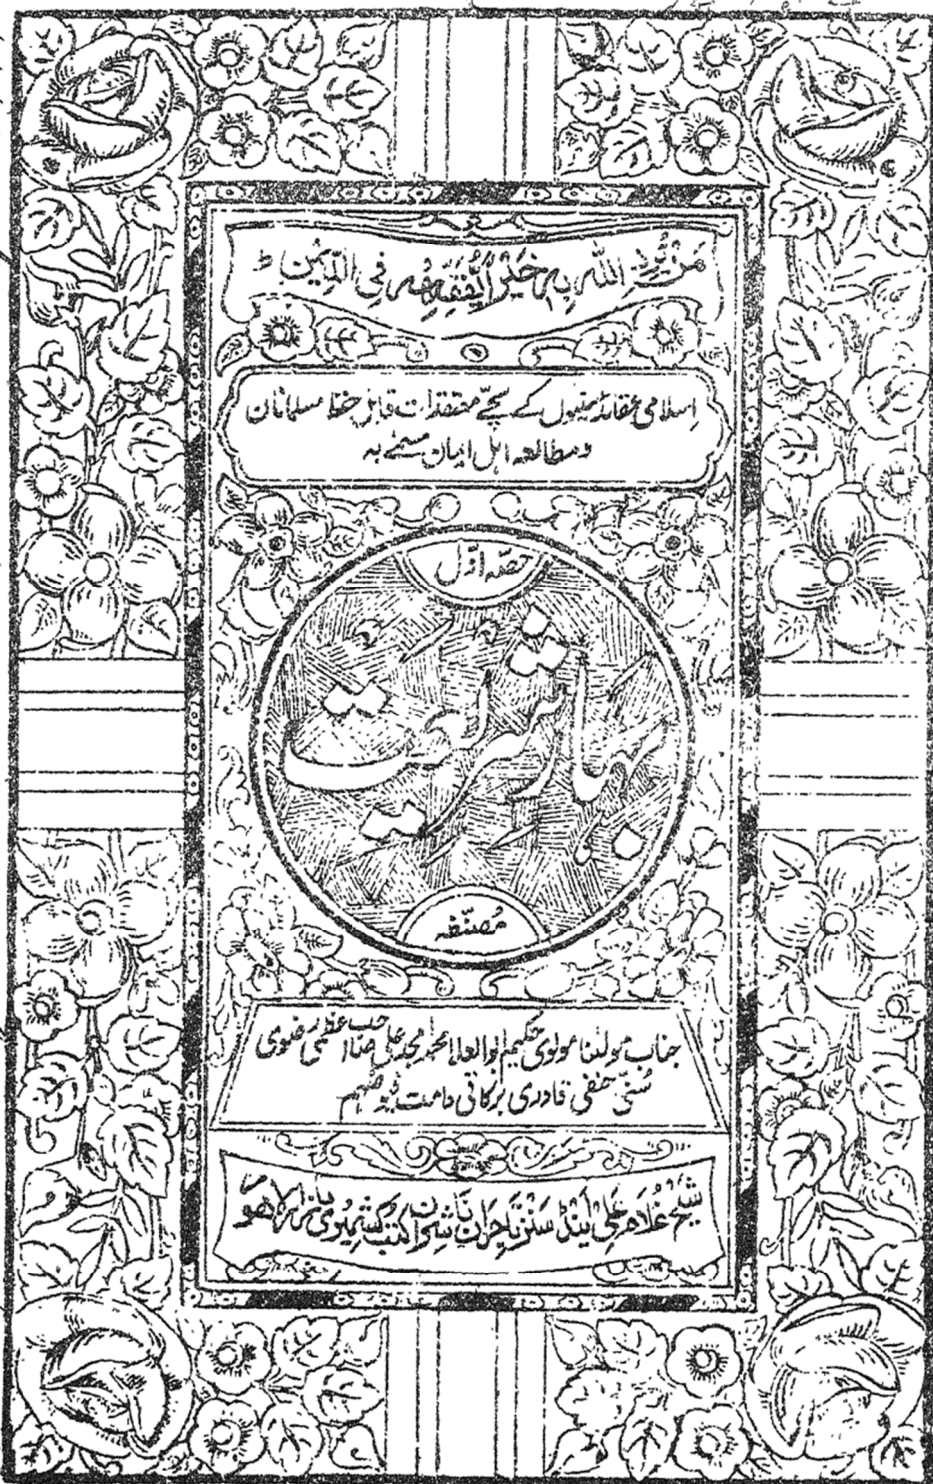 مَنْ يُّرِدِ اللّٰه بِهٖ خَيْرًا يُّفَقِّهْهُ فِي الدِّيْن ط
اسلامی عقائد سنیوں کے سچّے معتقدات قابل حفظ مسلمانان
و مطالعہ اہل ایمان مسمّٰے بہ
حصّہ اوّل
بہارِ شریعت
مُصنّفہ
جناب مولٰنا مولوی حکیم ابوالعلا محمد امجد علی صاحب اعظمی رضوی
سُنّی حنفی قادری برکاتی دامت فیوضہم
شیخ غُلام علی اینڈ سنز تاجران ناشران کتب کشمیری بازار لاہور